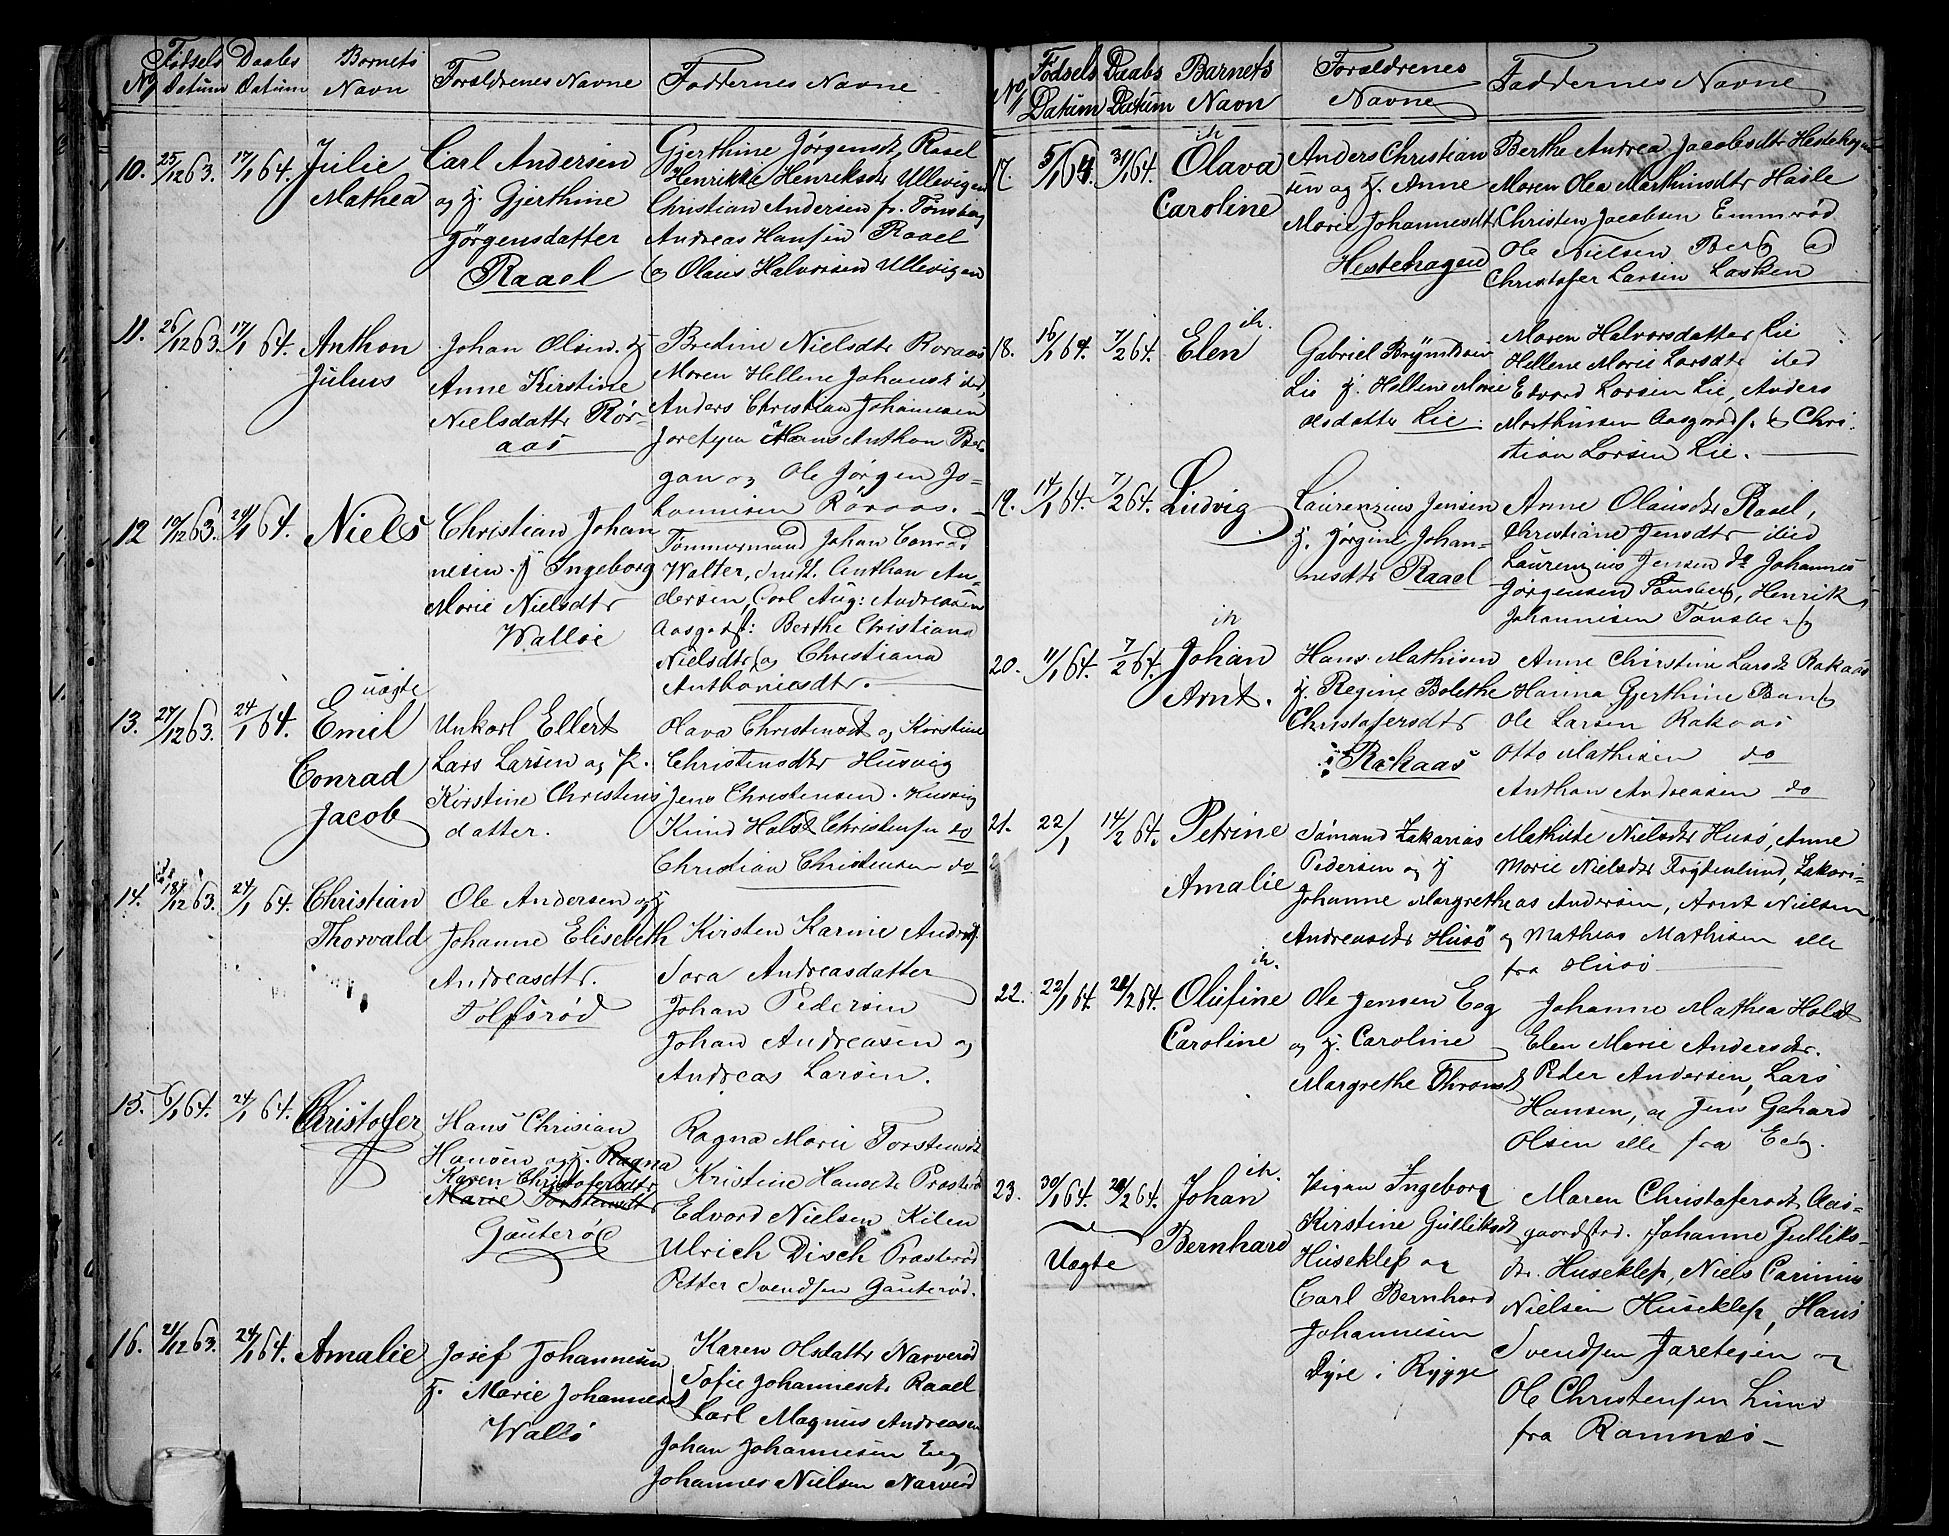 No Fødsels Datum Daabs Datum Barnets Navn Forældrenes Navne Faddernes Navne
10. 25/12 63. 17/1 64. Julie Mathea
Carl Andersen
og H. Gjerthine
Jørgensdatter
Raael
Gjerthine Jørgensdt. Raael
Henrikke Henriksdtr Ullevigen
Christian Andersen fr. Tønsberg
Andreas Hansen Raael
og Olaus Halvorsen Ullevigen
11. 26/12 63. 17/1 64. Anthon Julius
Johan Olsen. H
Anne Kirstine
Nielsdattr Rør-
aas
Bredine Nielsdtr Roraas
Maren Hellene Johansdt ibd,
Anders Christian Johannesen
Jaretejen Hans Anthon Ber-
gan og Ole Jørgen Jo-
hannisen Røraas.
12 10/12 63. 24/1 64. Niels
Christian Johan
nesen. H Ingeborg
Marie Nielsdtr
Walløe
Tømmermand Johan Conrad
Walter, Smtt. Anthon An-
dersen, Carl Aug: Andreasen
Aasgrdst: Berthe Christiana
Nielsdtr og Christiana
Anthoniesdtr.
13. 27/12 63. 24/1 64. uægte Emil Conrad Jacob
Unkarl Ellert
Lars Larsen og P.
Kirstine Christens
datter.
Olava Christensdt og Kirstine
Christensdtr Husvig
Jens Christensen. Husvig
Knud Holst Christensen do
Christian Christensen do
14. 18/12 63. 24/1 64. Christian Thorvald
Ole Andersen og H
Johanne Elisebeth
Andreasdtr.
Tolfsrød
Kirsten Karine Andreasd.
Sora Andreasdatter
Johan Pedersen
Johan Andreasen og
Andreas Larsen.
15. 6/1 64. 24/1 64. Christofer
Hans Chrisian
Hansen og H. Ragna
Karen Christofersdtr
Marie Torstensdtr
Gauterød
Ragna Marie Torstensdt
Kristine Hansdt Præsterød
Edvard Nielsen Kilen
Ulrich Disch Præsterød
Petter Svendsen Gauterød.
16. 21/12 63. 24/1 64. Amalie
Josef Johannesen
H. Marie Johannesdt
Walls
Karen Olsdattr Narverød
Sofie Johannesdt Raael
Carl Magnus Andreasen
Johan Johannesen Eeg
Johannes Nielsen Narverød
No Fødsels Datum Daabs Datum Barnets Navn Forældrenes Navne Faddernes Navne
17. 5/1 64 31/1 64. ih Olava Caroline
Anders Christian
sen og H. Anne
Marie Johannesdtr
Hestehagen
Berthe Andrea Jacobsdtr Hestehagen
Maren Olea Marthinsdtr Hasle
Christen Jacobsen Emmerød
Ole Nielsen Berg og
Christofer Larsen Løsken
18. 16/1 64. 7/2 64. ih. Elen
Gabriel Brynildsen
Lie H. Hellene Marie
olsdatter Lie.
Maren Halvorsdatter Lie
Hellene Marie Larsdt ibd
Edvard Larsen Lie, Anders
Marthinsen Aasgrdst. & Chri-
stian Larsen Lie.
19. 14/1 64. 7/2 64. Ludvig
Laurenzius Jensen
H. Jørgine Johan-
nesdtr Raael
Anne Olausdtr Raael,
Christiane Jensdtr ibid
Laurenzius Jensen do Johannes
Jørgensen Tønsberg, Henrik
Johannisen Tønsberg
20. 11/1 64. 7/2 64. ih Johan Arnt.
Hans Mathisen
H. Regine Bolethe
Christofersdtr
Rakaas
Anne Chirstine Larsdt Rakaas
Hanna Gjerthine Bang
Ole Larsen Rakaas
Otto Mathisen do
Anthon Andreasen do
21. 22/1 14/2 64. Petrine Amalie
Sømund Zakarias
Pedersen og H
Johanne Margrethe
Andreasdtr Husø
Mathilde Nielsdtr Husø, Anne
Marie Nielsdtr Frytenlund, Zakari-
as Andersen, Arnt Nielsen
og Mathias Mathisen alle
fra Husø
22. 22/1 64. 28/2 64. ih. Olufine Caroline
Ole Jensen Eeg
og H. Caroline
Margrethe Thronsd
Johanne Mathea Holst
Elen Marie Andersdtr.
Peder Andersen, Lars
Hansen, og Jens Gehard
Olsen alle fra Eeg.
23. 30/1 64. 28/2 64. ih. Johan Bernhard
Uægte
Pigen Ingeborg
Kirstine Gulliksdt
Huseklep og
Carl Bernhard
Johannesen
Dyre i Rygge
Maren Christofersdt, Aas-
gaardstrd. Johanne Gulliks-
dtr. Huseklep, Niels Carinius
Nielsen Huseklep, Hans
Svendsen Jaretejen og
Ole Christensen Lund
fra Ramnæs